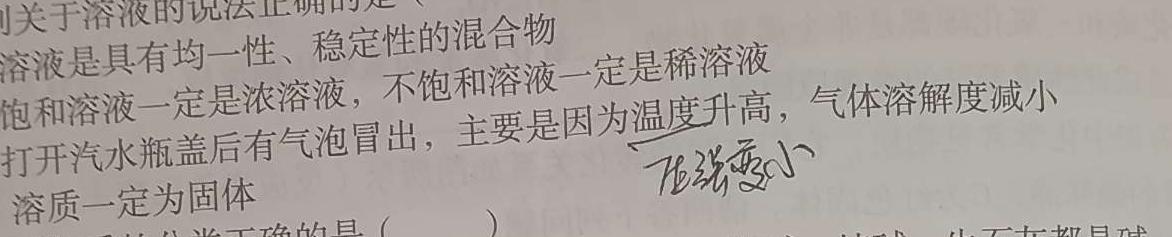 关于溶液的说法正确的是(
溶液是具有均一性、稳定性的混合物
饱和溶液一定是浓溶液，不饱和溶液一定是稀溶液
打开汽水瓶盖后有气泡冒出，主要是因为温度升高，气体溶解度减小
压强变小
溶质一定为固体
正确的是(　　)